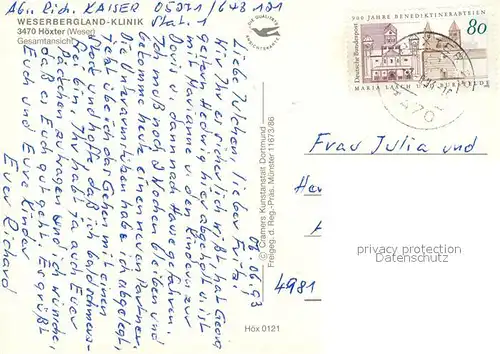 Abs. Rich. KAISER 05271 / 648 121
Stat. 1
WESERBERGLAND-KLINIK
3470 Höxter (Weser)
Gesamtansicht
08.06.93
Liebe Julchen, lieber Fritz!
Wie Ihr es sicherlich wißt, hat Georg
gestern Hedwig hier abgeholt u. ist
mit Marianne u. den Kindern zur
Doris u dannach Hause gefahren.
Ich muß noch 2 Wochen bleiben und
bekomme heute einen neuen Partner.
Die Unterarmstützen habe ich abgelegt,
jetzt übe ich das Gehen mit einem
Stock und hoffe, daß ich bald schmerz-
frei bin. Ihr habt ja auch Euer
Päckchen zu tragen und ich wünsche,
daß es Euch gut geht. Es grüßt
Euch und Eure Kinder
Euer Richard
DIE QUALITÄTS
ANSICHTSKARTE
© Cramers Kunstanstalt Dortmund
Freigeg. d. Reg.-Präs. Münster 11673/86
Höx 0121
900 JAHRE BENEDIKTINERABTEIEN
Deutsche Bundespost
80
MARIA LAACH UND BURSFELDE
470
Frau Julia und
4981
privacy protection
Datenschutz